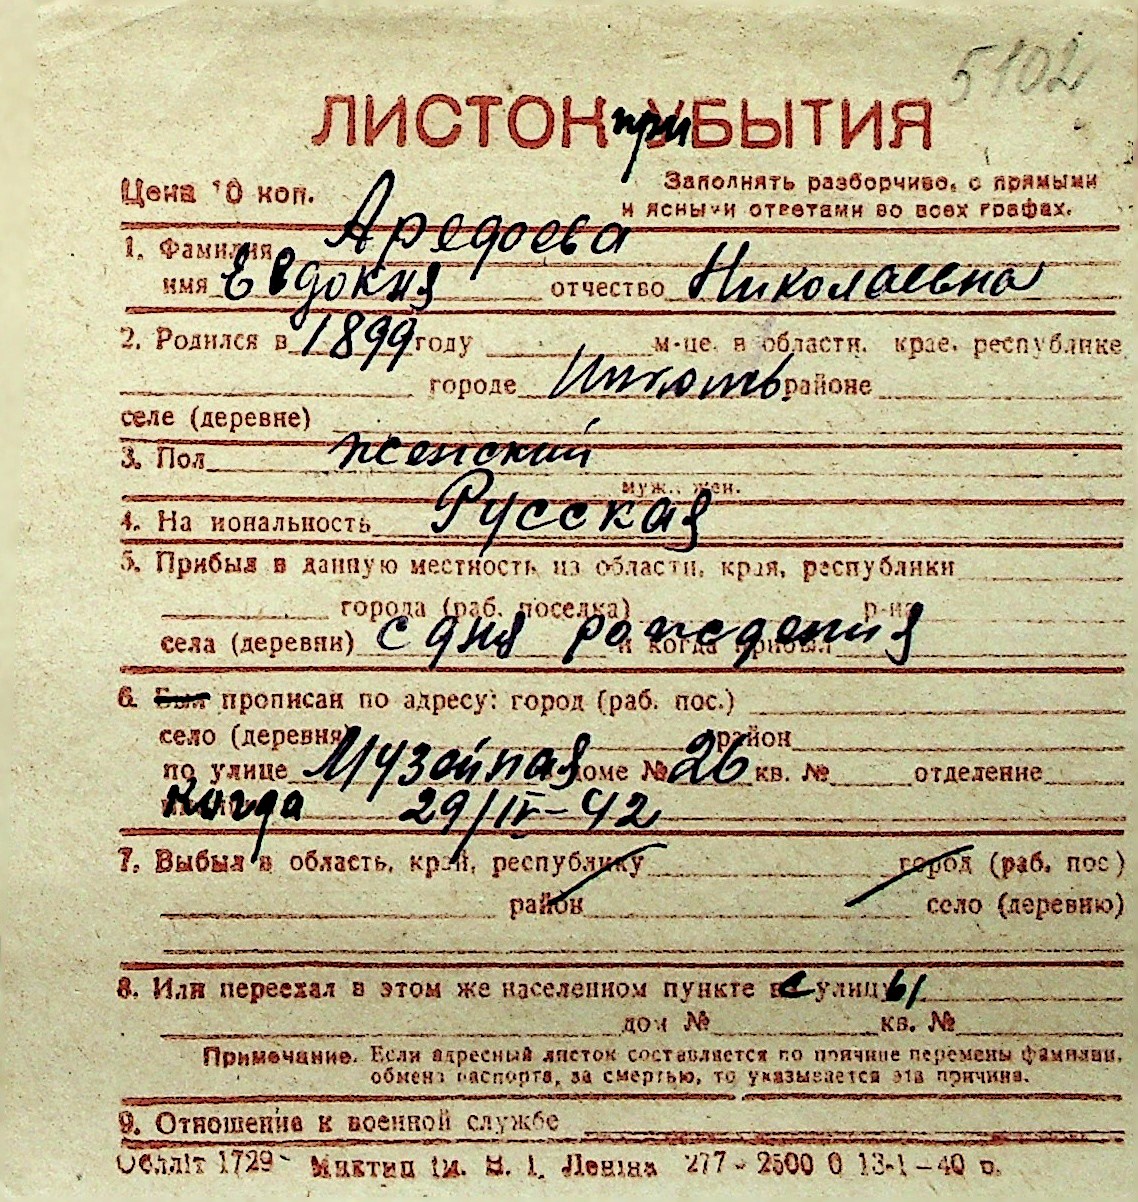 5102
ЛИСТОК приБЫТИЯ
Цена 10 коп.
Заполнять разборчиво, с прямыми
и ясными ответами во всех графах.
1. Фамилия Аредоева
имя Евдокия отчество Николаевна
2. Родился в 1899 году м-це. в области, крае, республике
городе районе
селе (деревне)
3. Пол женский
муж., жен.
4. Национальность Русская
5. Прибыл в данную местность из области, края, республики
города (раб. поселка) р-на
села (деревни) с дня рождения и когда прибыл
6. Был прописан по адресу: город (раб. пос.)
село (деревня) район
по улице Музейная доме № 26 кв. № отделение
Когда 29/IV-42
7. Выбыл в область, край, республику город (раб. пос)
район село (деревню)
8. Или переехал в этом же населенном пункте с улицы
дом № кв. №
Примечание. Если адресный листок составляется по причине перемены фамилии,
обмена паспорта, за смертью, то указывается эта причина.
9. Отношение к военной службе
Обллiт 1729 iм. В. I. Ленiна 277 - 2500 0 13-1-40 р.